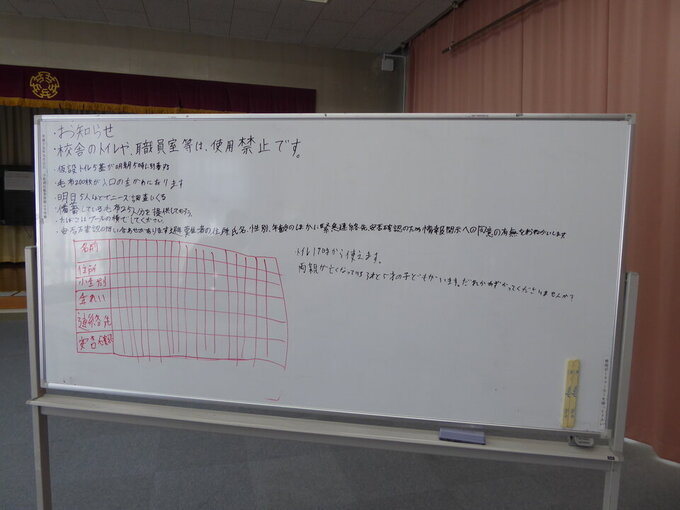 ・お知らせ
・校舎のトイレや、職員室等は、使用禁止です。
・仮設トイレ5基が明朝5時に到着する
・毛布200枚が入口の左がわにあります
・明日5人ほどでニーズ調査しくる
・備蓄している毛布25人分を提供してもらう。
・たばこはプールの横でしてください。
・安否確認の問い合わせがあります 避難者の住所、氏名、性別、年齢のほかに緊急連絡先、安否確認のため情報開示への同意の有無をおねがいします
トイレ17時から使えます。
両親が亡くなって 3才と5才の子どもがいます。だれかあずかってくださりませんか?
名前
住所
性別
年れい
連絡先
安否確認